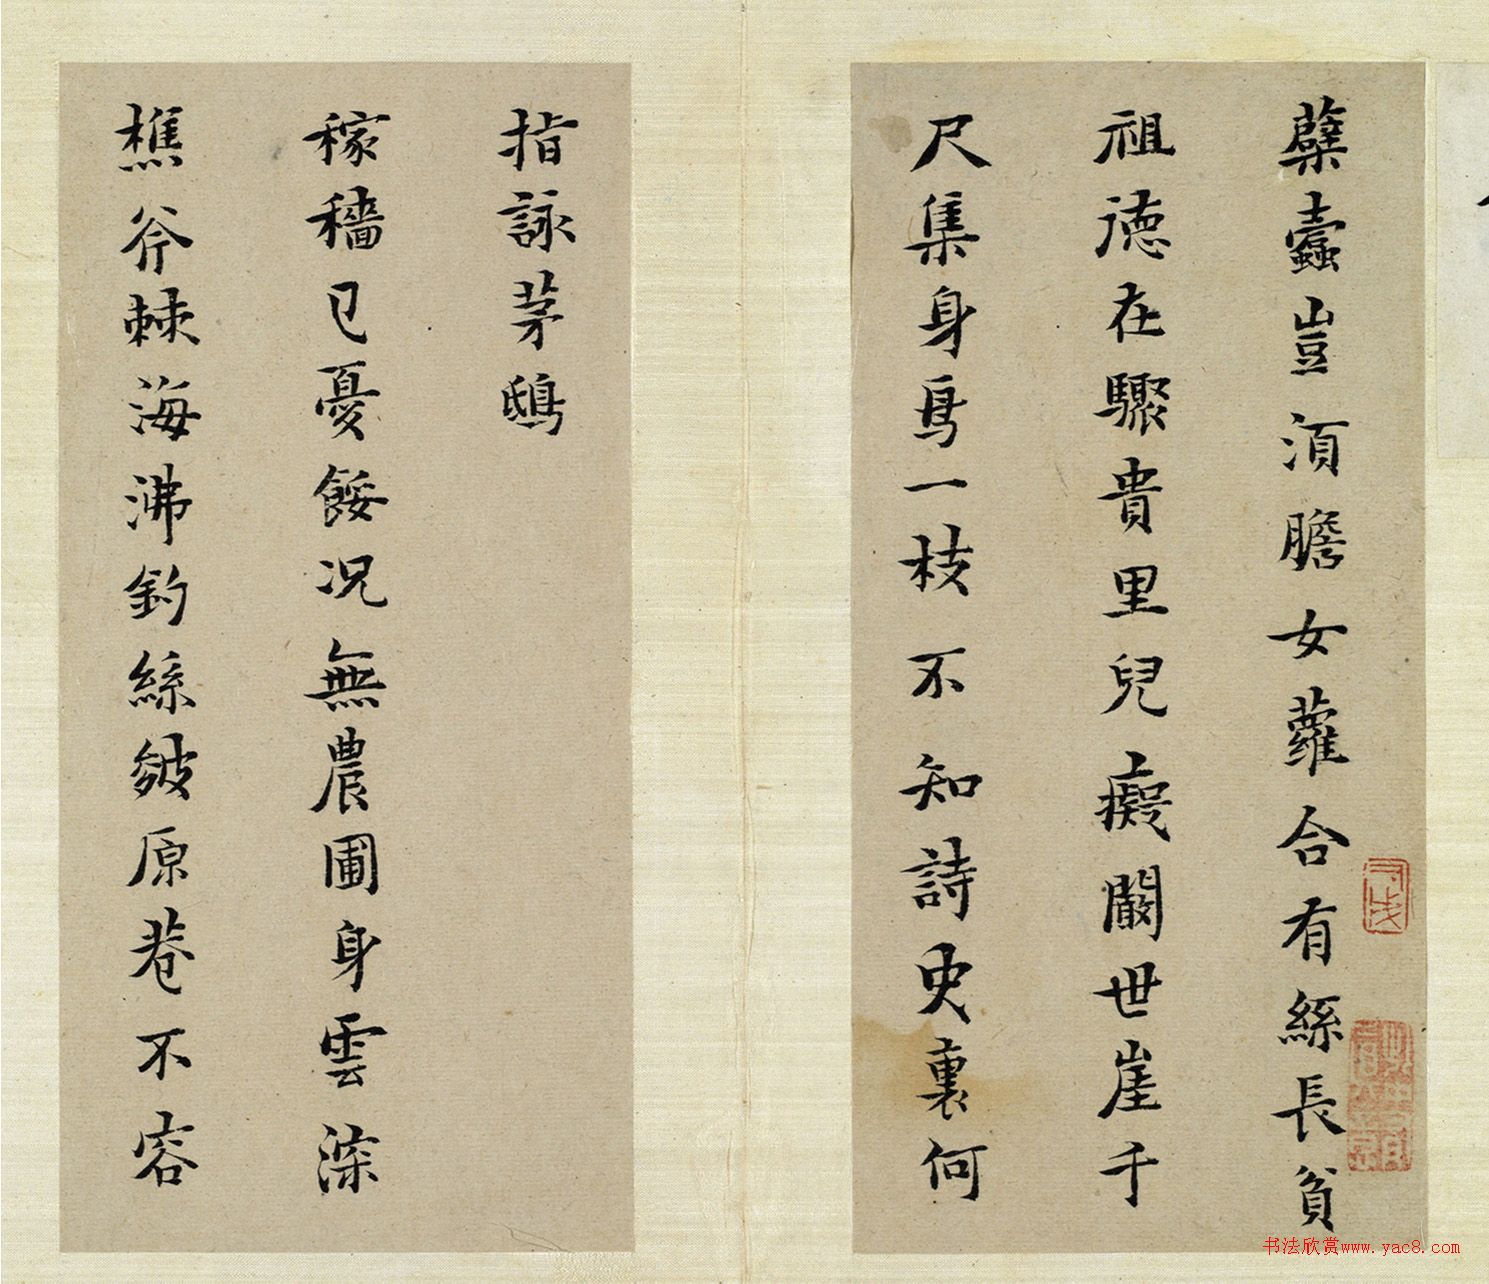 蘖蠹豈須膽女蘿合有絲長貧
祖德在驟貴里兒癡闞世崖千
尺集身鳥一枝不知詩史裏何
指詠茅鴟
稼穡已憂餒況無農圃身雲深
樵斧棘海沸釣絲皴原巷不容
书法欣赏www.yac8.com